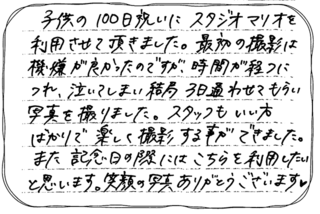 子供の100日祝いにスタジオマリオを
利用させて頂きました。最初の撮影は
機嫌が良かったのですが時間が経つに
つれ、泣いてしまい結局3日通わせてもらい
写真を撮りました。スタッフもいい方
ばかりで楽しく撮影する事ができました。
また記念日の際にはこちらを利用したい
と思います。笑顔の写真ありがとうございます♥